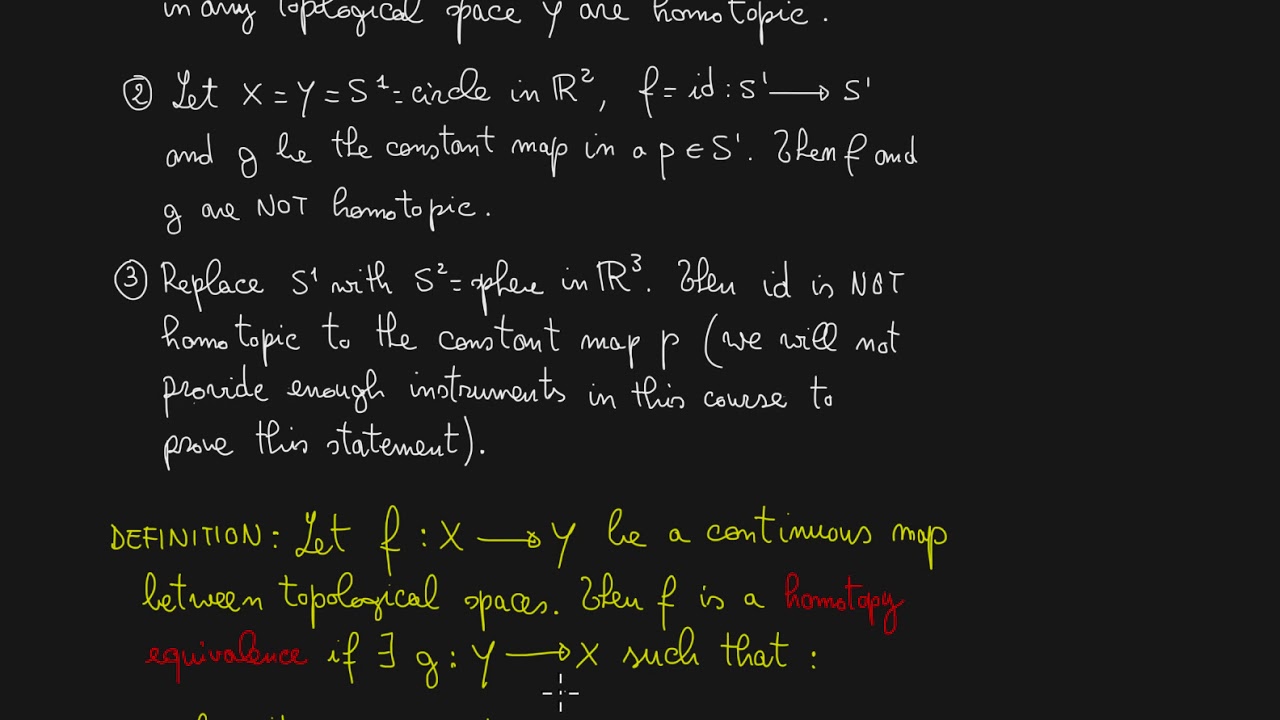 in any topological space Y are homotopic.
② Let X = Y = S¹ = circle in ℝ², f = id : S¹ ⟶ S¹
and g be the constant map in a p ∈ S¹. Then f and
g are NOT homotopic.
③ Replace S¹ with S² = sphere in ℝ³. Then id is NOT
homotopic to the constant map p (we will not
provide enough instruments in this course to
prove this statement).
DEFINITION: Let f : X ⟶ Y be a continuous map
between topological spaces. Then f is a homotopy
equivalence if ∃ g : Y ⟶ X such that :